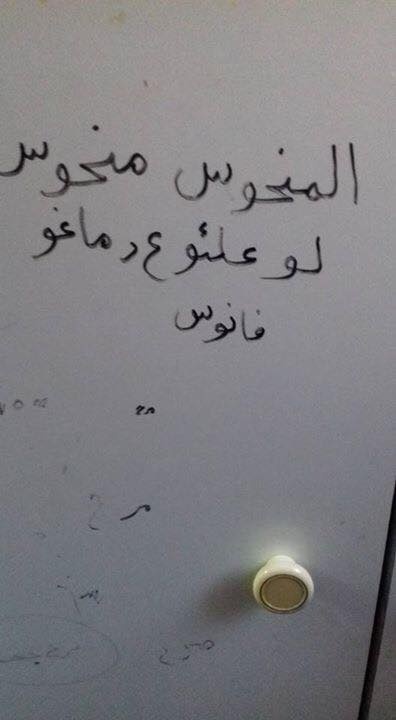 المنحوس منحوس
لو علئو ع دماغو
فانوس